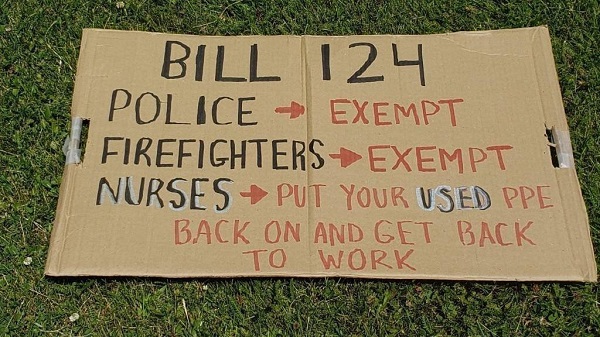 BILL 124
POLICE → EXEMPT
FIREFIGHTERS → EXEMPT
NURSES → PUT YOUR USED PPE
BACK ON AND GET BACK
TO WORK